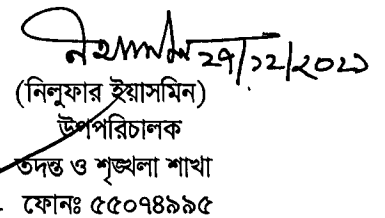 ২৭/১২/২০২১
(নিলুফার ইয়াসমিন)
উপপরিচালক
তদন্ত ও শৃঙ্খলা শাখা
ফোনঃ ৫৫০৭৪৯৯৫